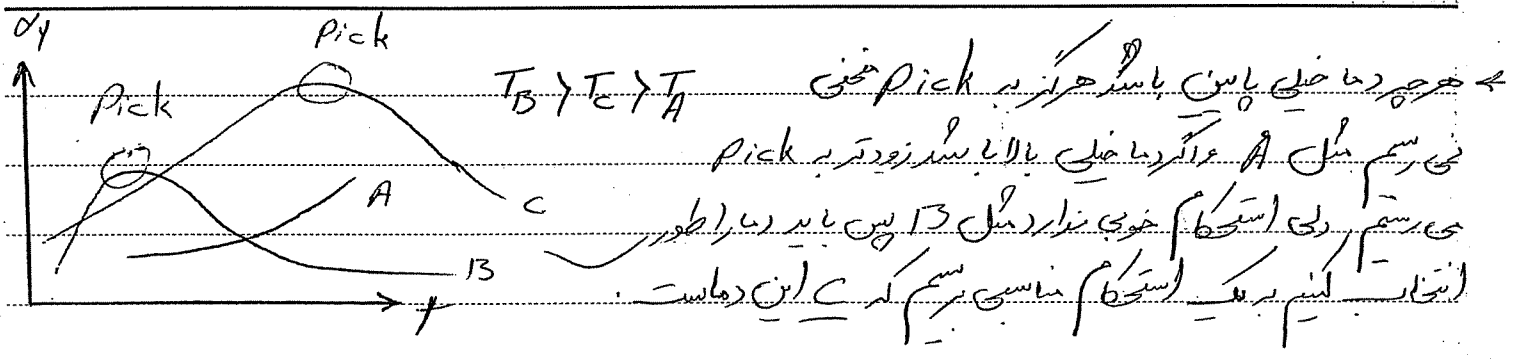 σy
Pick
Pick
A
C
B
t
T_B > T_C > T_A
← هر چه دما خیلی پایین باشد هرگز به Pick منحنی
نمی رسم مثل A و اگر دما خیلی بالا باشد زودتر به Pick
می رسم ولی استحکام خوبی ندارد مثل B پس باید دما را طوری
انتخاب کنیم به یک استحکام مناسبی برسم که C این دماست.